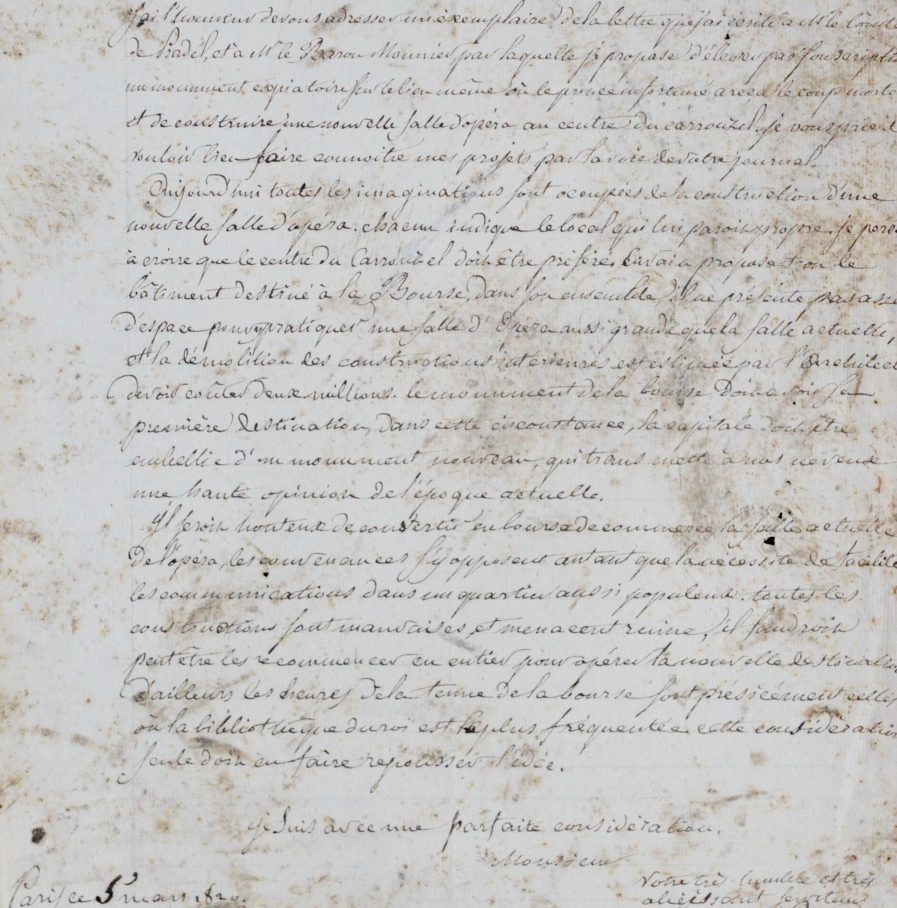 J'ai l'honneur de vous adresser un exemplaire de la lettre que j'ai écrite à Mr le Comte
de Pradel, et à Mr le Baron Mounier par laquelle je propose d'élever par souscription
un monument expiatoire sur le lieu même où le prince infortuné a reçu le coup mortel
et de construire une nouvelle salle d'opéra au centre du carrouzel. je vous prie de
vouloir bien faire connoitre mes projets par la voie de votre journal.
Aujourd'hui toutes les imaginations sont occupées de la construction d'une
nouvelle salle d'opéra. chacun indique le local qui lui paroit propre. je persiste
à croire que le centre du Carrouzel doit être préféré, envain propose t-on le
bâtiment destiné à la Bourse, dans son ensemble il ne présente pas assez
d'espace pour pratiquer une salle d'Opéra aussi grande que la salle actuelle,
et la démolition des constructions intérieures est estimée par l'Architecte
devoir couter deux millions. le monument de la bourse doit avoir sa
première destination, dans cette circonstance, la capitale doit être
embellie d'un monument nouveau, qui transmette à nos neveux
une haute opinion de l'époque actuelle.
Il seroit honteux de convertir en bourse de commerce la salle actuelle
de l'opéra, les convenances s'y opposent autant que la nécessité de faciliter
les communications dans un quartier aussi populeux. toutes les
constructions sont mauvaises et menacent ruine, il faudroit
peut être les recommencer en entier pour opérer la nouvelle destination
d'ailleurs les heures de la tenue de la bourse sont présicément celles
où la bibliothèque du roi est le plus fréquentée cette considération
seule doit en faire repousser l'idée.
Je suis avec une parfaite considération,
Monsieur
Votre très humble et très
obéissant serviteur
Paris ce 5 mars 1820.